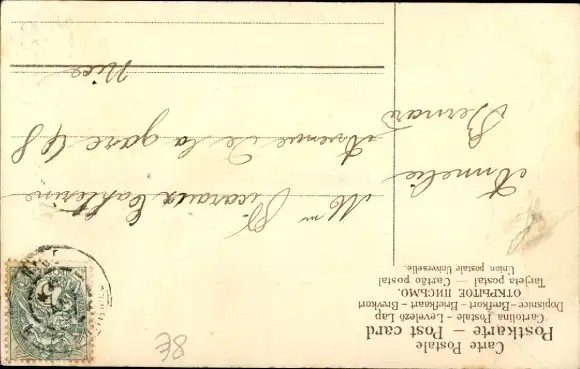 Carte Postale
Postkarte – Post card
Cartolina Postale – Levelező Lap
Dopisnice – Brefkort – Briefkaart – Brevkort
ОТКРЫТОЕ ПИСЬМО.
Tarjeta postal — Cartão postal
Union postale Universelle.
Annelie
Bernard
Mme Catherine
Avenue de la gare 48
Nice
3E